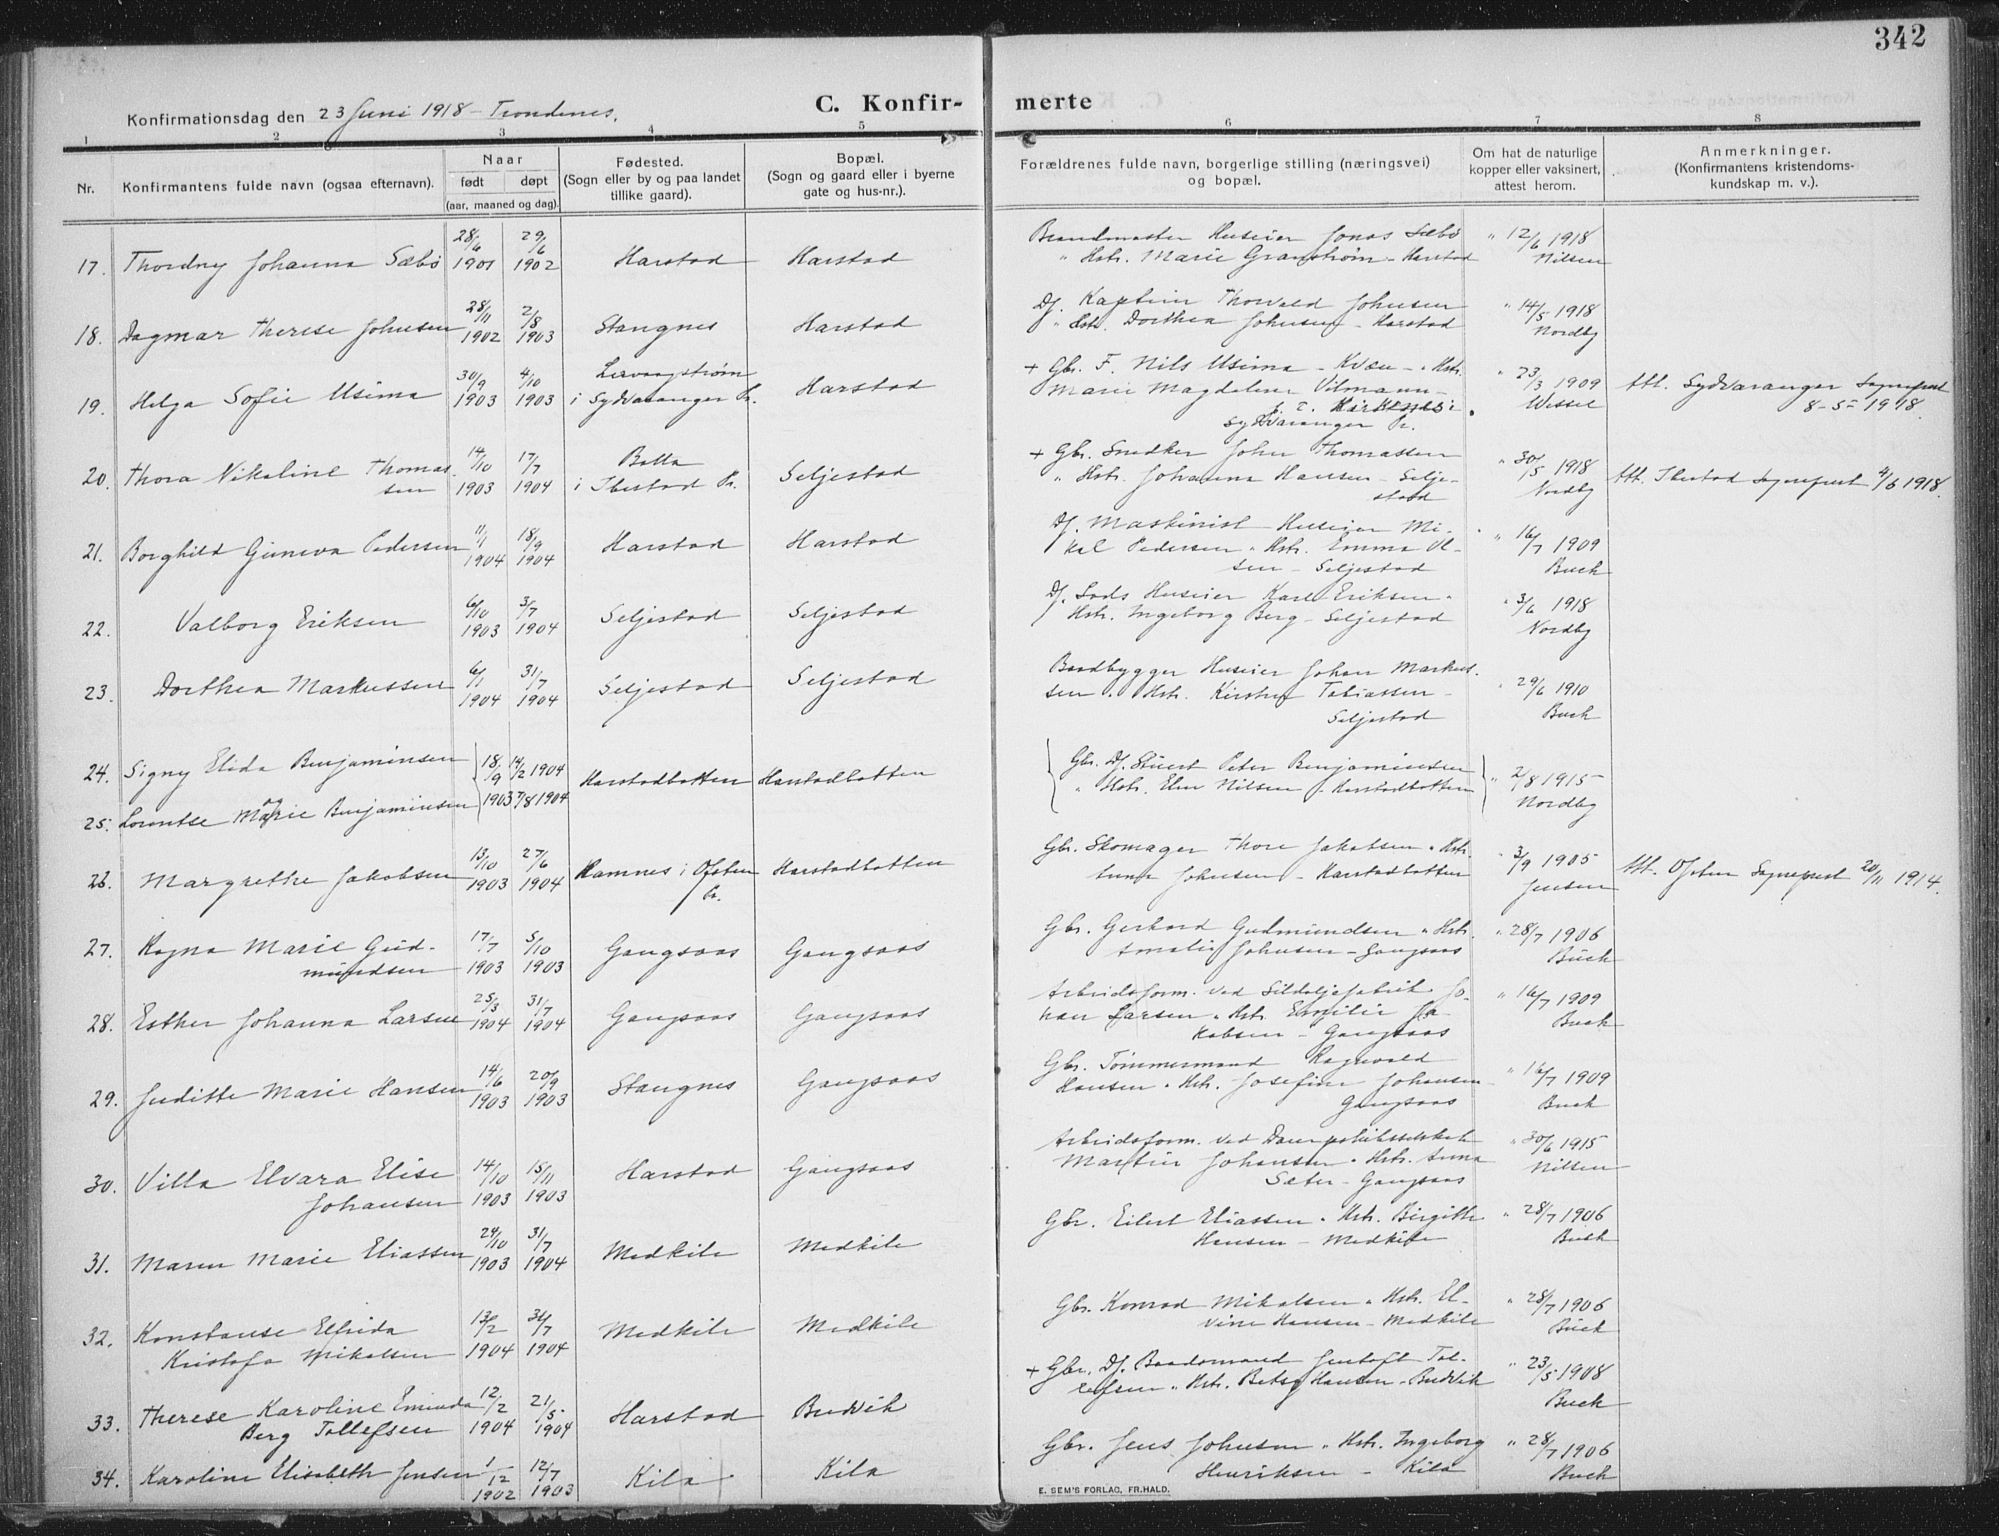 342
Konfirmationsdag den 23 Juni 1918 – Trondenes.
C. Konfir-
merte
1 2 3 4 5 6 7 8
Nr.
Konfirmantens fulde navn (ogsaa efternavn).
Naar
født døpt
(aar, maaned og dag).
Fødested.
(Sogn eller by og paa landet
tillike gaard).
Bopæl.
(Sogn og gaard eller i byerne
gate og hus-nr.).
Forældrenes fulde navn, borgerlige stilling (næringsvei)
og bopæl.
Om hat de naturlige
kopper eller vaksinert,
attest herom.
Anmerkninger.
(Konfirmantens kristendoms-
kundskap m. v.).
17. Thordny Johanna Sæbø 28/6 1901 29/6 1902 Harstad Harstad
Brandmester Huseier Jonas Sæbø
" Hstr. Marie Granstrøm – Harstad
" 12/6 1918
Nilsen
18. Dagmar Therese Johnsen 28/11 1902 2/8 1903 Stangnes Harstad
Dj. Kaptein Thorvald Johnsen
" Hstr. Dorthea Johnsen – Harstad
" 14/5 1918
Nordby
19. Helga Sofie Usima 30/9 1903 4/10 1903
i Sydvaranger Pr. Harstad
+ Gbr. F. Nils Usima – Kvæn – " Hstr.
Marie Magdalena Vilmann –
p. t. Kirkenes i
Sydvaranger Pr.
" 23/3 1909
Wessel
Att. Sydvaranger Sogneprest
8-5-1918.
20. Thora Nikoline Thomas-
sen 14/10 1903 17/7 1904
i Ibestad Pr. Seljestad
+ Gbr. Snedker John Thomassen
" Hstr. Johanna Hansen – Selje-
stad
" 30/5 1918
Nordby
Att. Ibestad Sogneprest 4/6 1918.
21. Borghild Gineva Pedersen 11/1 1904 18/9 1904 Harstad Harstad
Dj. Maskinist Huseier Mi-
kal Pedersen " Hstr. Emma Ol-
sen – Seljestad
" 16/7 1909
Buch
22. Valborg Eriksen 6/10 1903 3/7 1904 Seljestad Seljestad
Dj. Lods Huseier Karl Eriksen "
Hstr. Ingeborg Berg – Seljestad
" 3/6 1918
Nordby
23. Dorthea Markussen 6/1 1904 31/7 1904 Seljestad Seljestad
Baadbygger Huseier Johan Markus-
sen " Hstr. Kirstine Tobiassen –
Seljestad
" 29/6 1910
Buch
24. Signy Elida Benjaminsen 18/9 14/2 1904 Harstadbotten Harstadbotten
og
25. Lorentse Marie Benjaminsen 1903 7/8 1904
Gbr. Dj. Stuert Peter Benjaminsen
" Hstr. Elen Nilsen – Harstadbotten
" 2/8 1915
Nordby
26. Margrethe Jakobsen 13/10 1903 27/6 1904 Ramnes i Ofoten
Pr. Harstadbotten
Gbr. Skomager Thore Jakobsen " Hstr.
Anna Johnsen – Harstadbotten
" 3/9 1905
Jensen
Att. Ofoten Sogneprest 20/11 1914.
27. Ragna Marie Gud-
mundsen 17/7 1903 5/10 1903 Gangsaas Gangsaas
Gbr. Gerhard Gudmundsen " Hstr.
Amalie Johnsen – Gangsaas
" 28/7 1906
Buch
28. Esther Johanna Larsen 25/3 1904 31/7 1904 Gangsaas Gangsaas
Arbeidsform. ved Sildoljefabrik Jo-
han Larsen " Hstr. Emilie Ja-
kobsen – Gangsaas
" 16/7 1909
Buch
29. Juditte Marie Hansen 14/6 1903 20/9 1903 Stangnes Gangsaas
Gbr. Tømmermand Ragnvald
Hansen " Hstr. Josefine Johansen –
Gangsaas
" 16/7 1909
Buch
30. Villa Elvara Elise
Johansen 14/10 1903 15/11 1903 Harstad Gangsaas
Arbeidsform. ved Dampskibsselskab
Martin Johansen " Hstr. Anna
Sæter – Gangsaas
" 30/6 1915
Nilsen
31. Maren Marie Eliassen 24/10 1903 31/7 1904 Medkile Medkile
Gbr. Eilert Eliassen " Hstr. Birgitte
Hansen – Medkile
" 28/7 1906
Buch
32. Konstanse Elfrida
Kristofa Mikalsen 13/2 1904 31/7 1904 Medkile Medkile
Gbr. Konrad Mikalsen " Hstr. El-
vine Hansen – Medkile
" 28/7 1906
Buch
33. Therese Karoline Eminda
Berg Tollefsen 12/2 1904 21/5 1904 Harstad Budvik
+ Gbr. Dj. Baadsmand Jentoft Tol-
lefsen " Hstr. Betsy Hansen – Budvik
" 23/5 1908
Buch
34. Karoline Elisabeth Jensen 1/12 1902 12/7 1903 Kila Kila
Gbr. Jens Johnsen " Hstr. Ingeborg
Henriksen – Kila
" 28/7 1906
Buch
E. SEM'S FORLAG, FR.HALD.